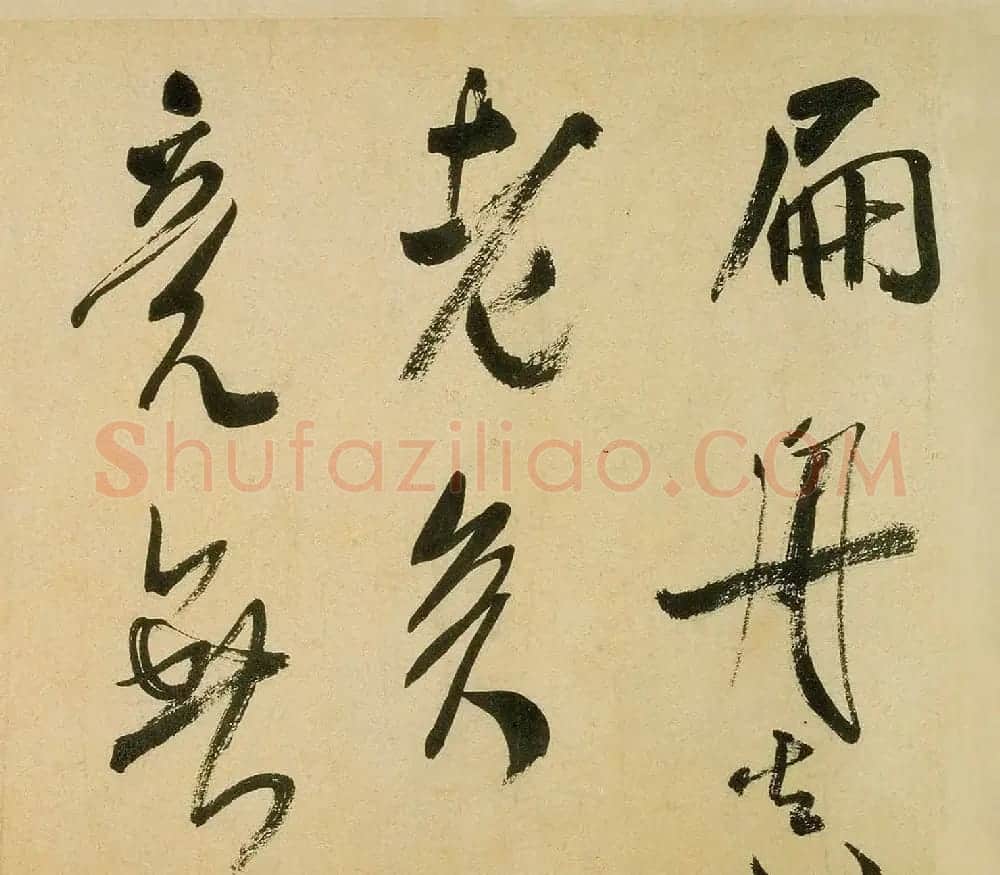 扁舟真
老矣
竟無
Shufaziliao.COM